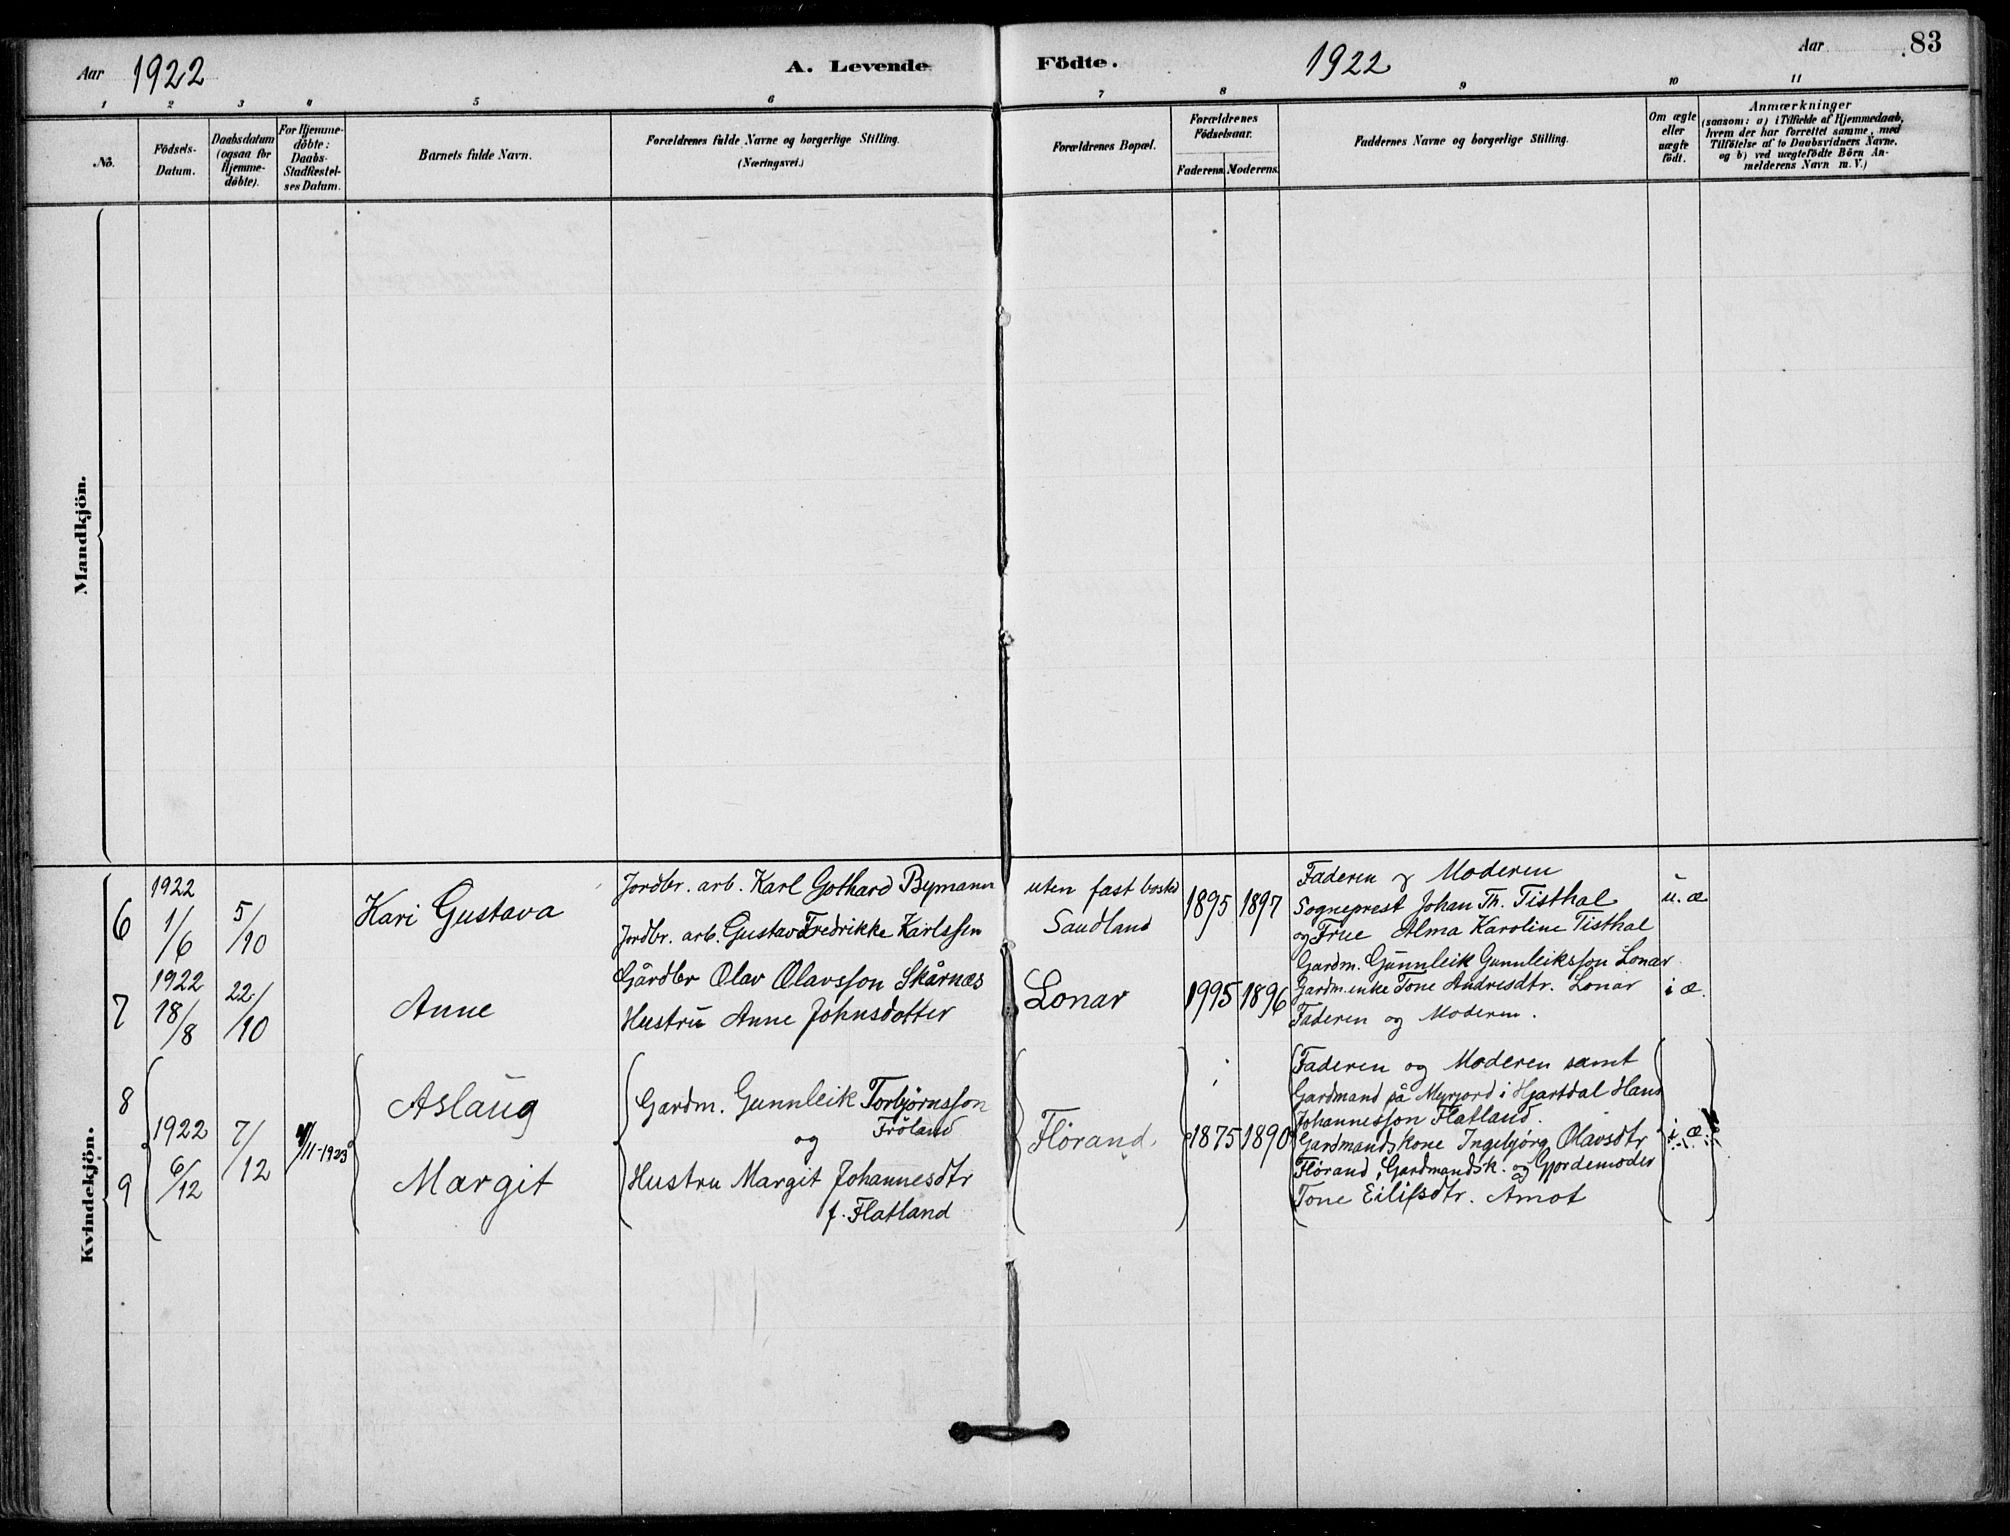 Aar 1922 A. Levende Födte. 1922 Aar 83
1 2 3 4 5 6 7 8 9 10 11
No.
Födsels-
Datum.
Daabsdatum
(ogsaa for
Hjemme-
döbte).
For Hjemme-
döbte:
Daabs-
Stadfæstel-
ses Datum.
Barnets fulde Navn.
Forældrenes fulde Navne og borgerlige Stilling.
(Næringsvei.)
Forældrenes Bopæl.
Forældrenes
Födselsaar.
Faderens. Moderens.
Faddernes Navne og borgerlige Stilling.
Om ægte
eller
uægte
födt.
Anmærkninger
(saasom: a) i Tilfælde af Hjemmedaab,
hvem der har forrettet samme, med
Tilföielse af to Daabsvidners Navne,
og b) ved uægtefödte Börn An-
melderens Navn m. V.)
Mandkjön.
Kvindekjön.
6
1922
1/6
5/10
Kari Gustava
Jordbr. arb. Karl Gothard Bymann
Jordbr. arb. Gustava Fredrikke Karlssen
uten fast bosted
Sandland
1895 1897
Faderen og Moderen
Sogneprest Johan Th. Tisthal
og Frue Alma Karoline Tisthal
u. æ
7
1922
18/8
22/10
Anne
Gårdbr Olav Olavsson Skårnæs
Hustru Anne Johnsdotter
Lonar
1995 1896
Gardm. Gunnleik Gunnleiksson Lonar
Gardm.enke Tone Andresdtr. Lonar
Faderen og Moderen.
i æ.
8
9
1922
6/12
7/12
/11-1923
Aslaug
Margit
Gardm. Gunnleik Torbjørnsson
Frøland
og
Hustru Margit Johannesdtr
f. Flatland
Flørand.
1875 1890
Faderen og Moderen samt
Gardmand på Myrjord i Hjartdal Hans
Johannesson Flatland.
Gardmandskone Ingebjørg Olavsdtr
Flørand, Gardmandsk. og Gjordemoder
Tone Eilifsdtr. Amot
i. æ.